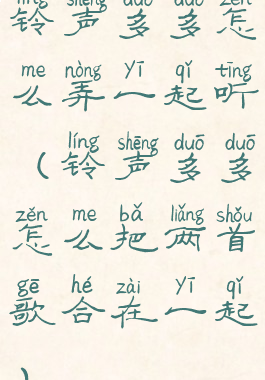 líng shēng duō duō zěn
铃声多多怎
me nòng yī qǐ tīng
么弄一起听
líng shēng duō duō
（铃声多多
zěn me bǎ liǎng shǒu
怎么把两首
gē hé zài yī qǐ
歌合在一起
）